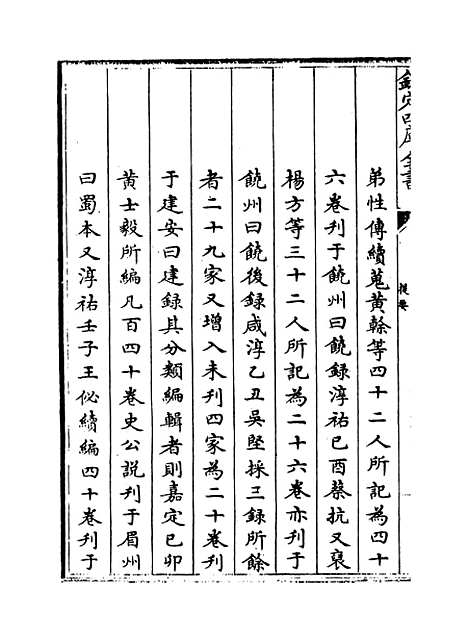 欽定四庫全書
提要
弟性傳續蒐黄榦等四十二人所記為四十
六卷刊于饒州曰饒録淳祐己酉蔡抗又裒
楊方等三十二人所記為二十六卷亦刊于
饒州曰饒後録咸淳乙丑吳堅採三録所餘
者二十九家又增入未刊四家為二十卷刊
于建安曰建録其分類編輯者則嘉定己卯
黄士毅所編凡百四十卷史公說刊于眉州
曰蜀本又淳祐壬子王佖續編四十卷刊于